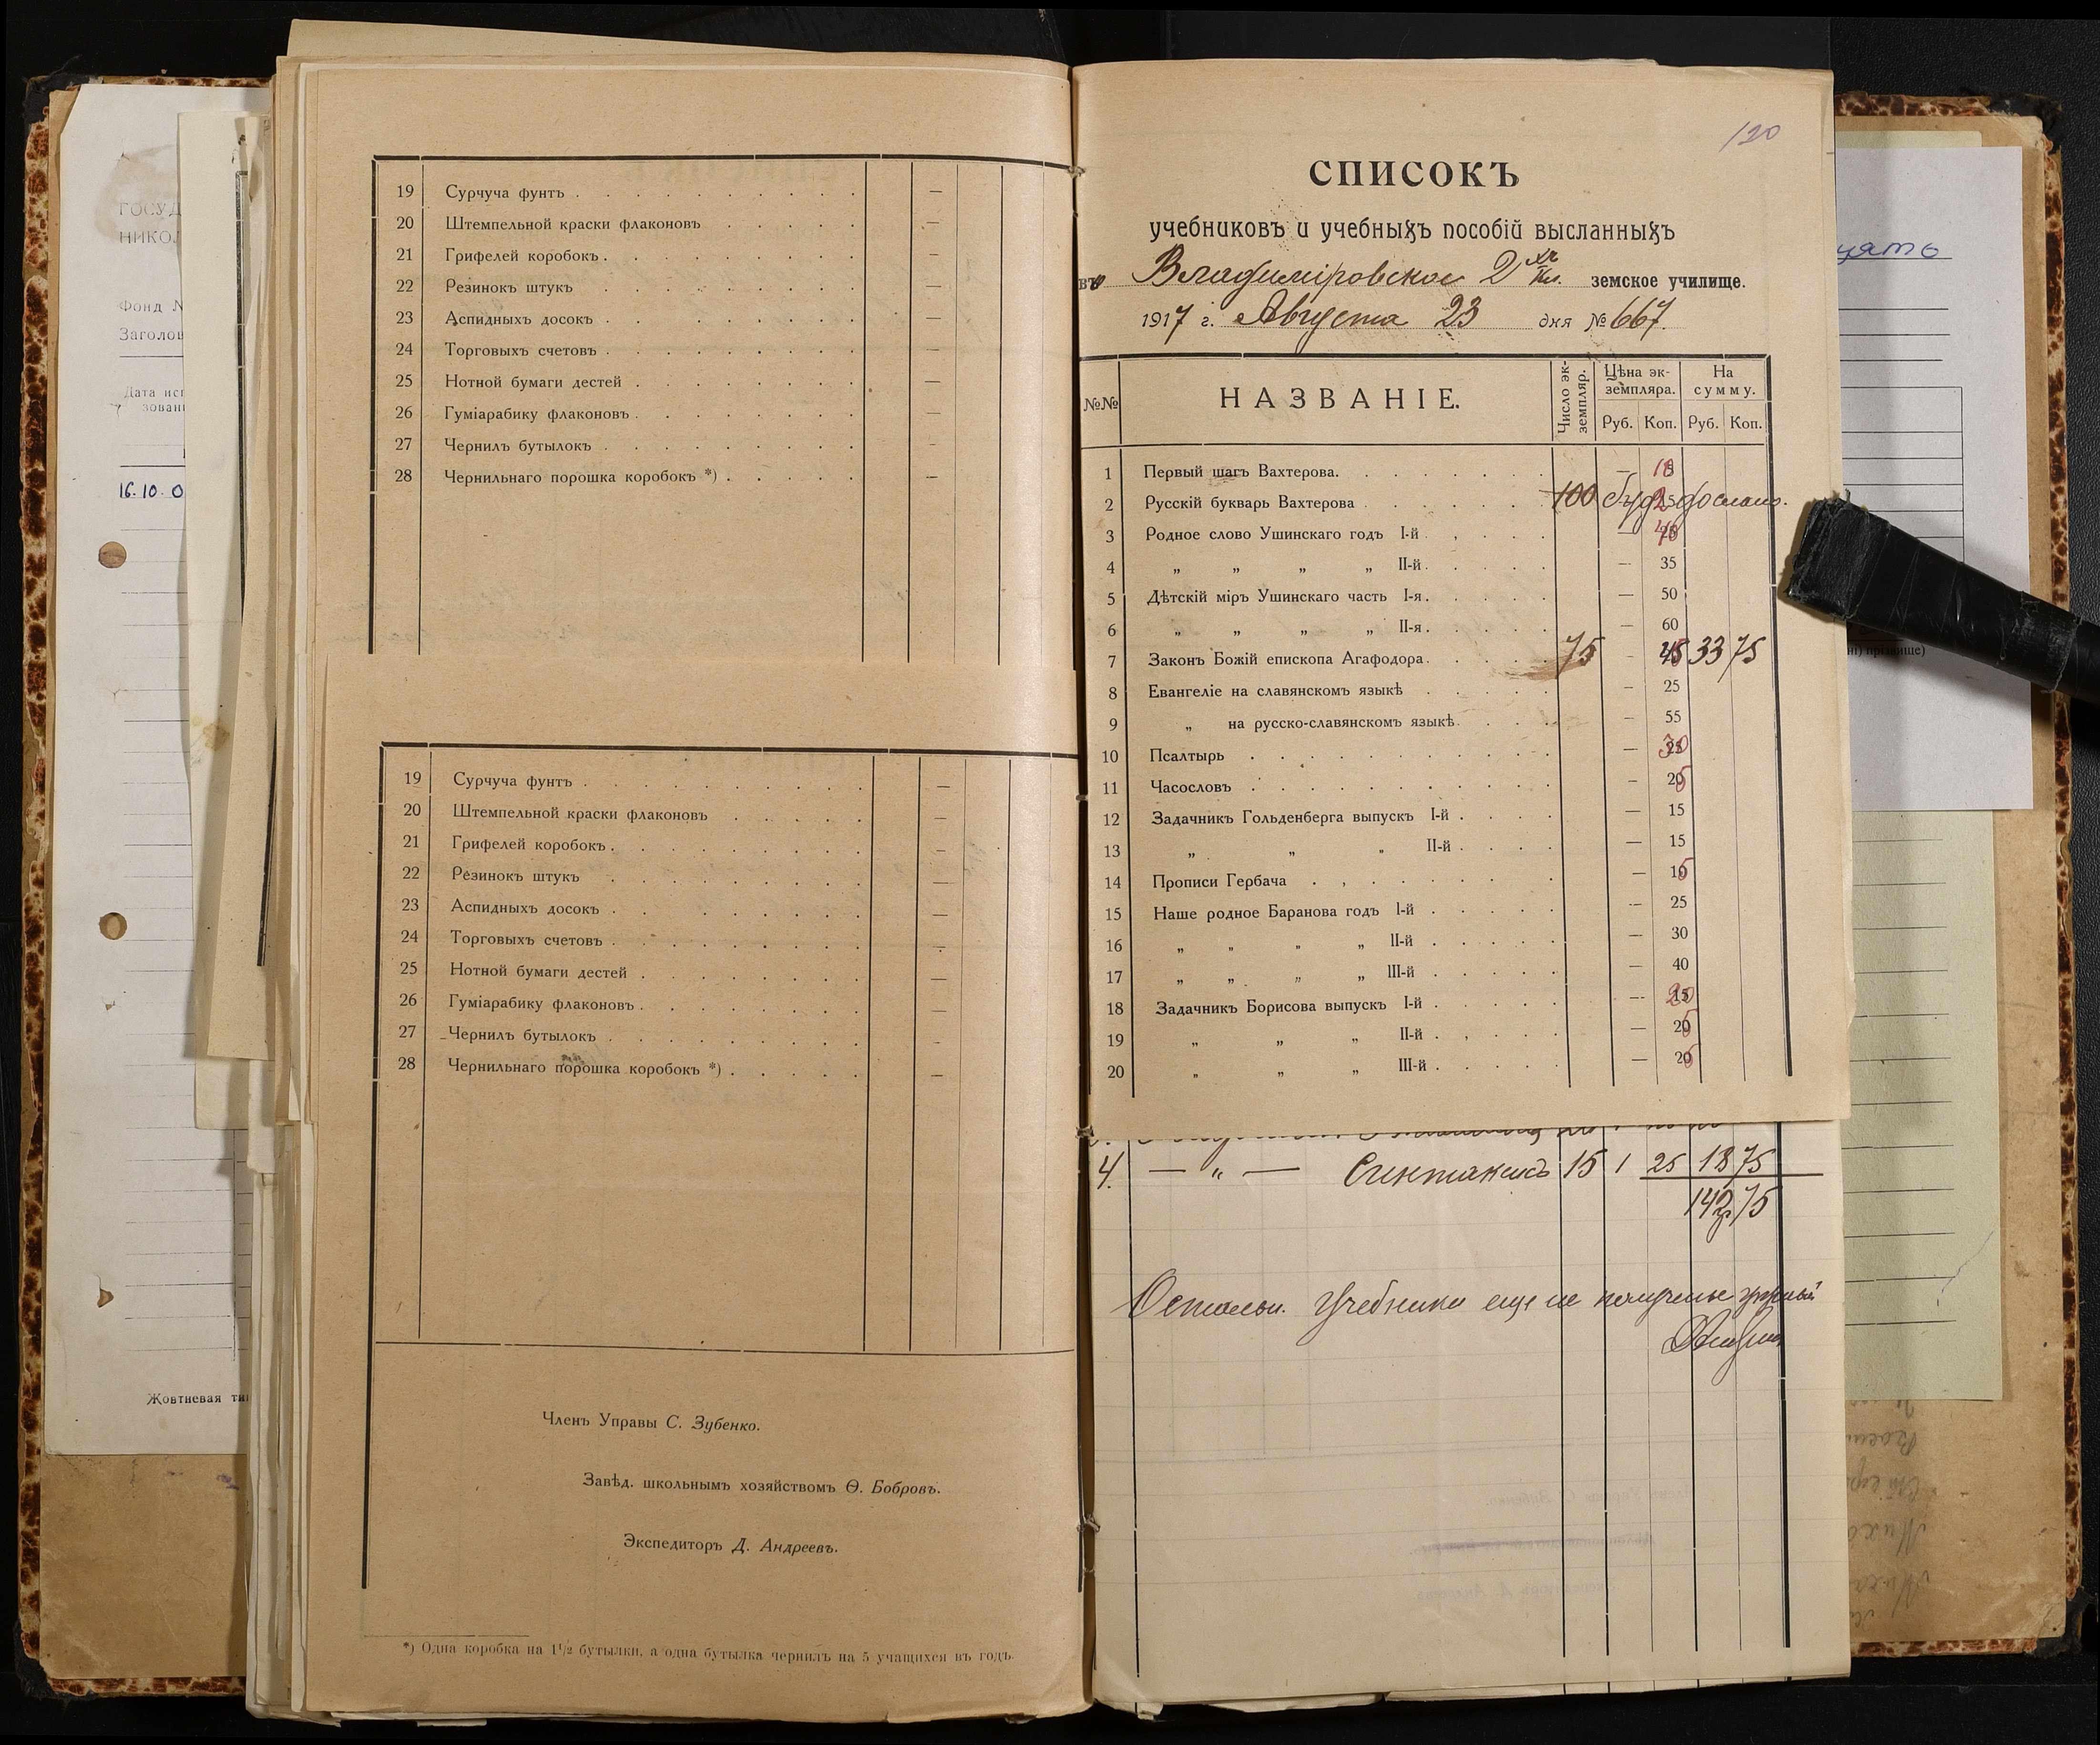 ГОСУД
НИКОЛ
Фонд №
Заголов
Дата исп
зовани
16.10.0
Жовтневая ти
19 Сурчуча фунтъ —
20 Штемпельной краски флаконовъ —
21 Грифелей коробокъ —
22 Резинокъ штукъ —
23 Аспидныхъ досокъ —
24 Торговыхъ счетовъ —
25 Нотной бумаги дестей —
26 Гуміарабику флаконовъ —
27 Чернилъ бутылокъ —
28 Чернильнаго порошка коробокъ *) —
19 Сурчуча фунтъ —
20 Штемпельной краски флаконовъ —
21 Грифелей коробокъ —
22 Резинокъ штукъ —
23 Аспидныхъ досокъ —
24 Торговыхъ счетовъ —
25 Нотной бумаги дестей —
26 Гуміарабику флаконовъ —
27 Чернилъ бутылокъ —
28 Чернильнаго порошка коробокъ *) —
Членъ Управы С. Зубенко.
Завѣд. школьнымъ хозяйствомъ Ѳ. Бобровъ.
Экспедиторъ Д. Андреевъ.
*) Одна коробка на 1 1/2 бутылки, а одна бутылка чернилъ на 5 учащихся въ годъ.
120
СПИСОКЪ
учебниковъ и учебныхъ пособій высланныхъ
въ Владиміровское 2 хъ кл. земское училище.
1917 г. Августа 23 дня № 667.
№№ НАЗВАНІЕ. Число экземпляр. Цѣна экземпляра. Руб. Коп. На сумму. Руб. Коп.
1 Первый шагъ Вахтерова —
2 Русскій букварь Вахтерова 100 буд дослано.
3 Родное слово Ушинскаго годъ I-й —
4 „ „ „ „ II-й — 35
5 Дѣтскій міръ Ушинскаго часть I-я — 50
6 „ „ „ „ II-я — 60
7 Законъ Божій епископа Агафодора 75 - 45 33 75
8 Евангеліе на славянскомъ языкѣ — 25
9 „ на русско-славянскомъ языкѣ — 55
10 Псалтырь — 30
11 Часословъ — 25
12 Задачникъ Гольденберга выпускъ I-й — 15
13 „ „ „ II-й — 15
14 Прописи Гербача — 15
15 Наше родное Баранова годъ I-й — 25
16 „ „ „ „ II-й — 30
17 „ „ „ „ III-й — 40
18 Задачникъ Борисова выпускъ I-й — 20
19 „ „ „ II-й — 25
20 „ „ „ III-й — 25
4. — „ — Синтаксисъ 15 1 25 18 75
142 75
Остальн. Учебники еще не получены